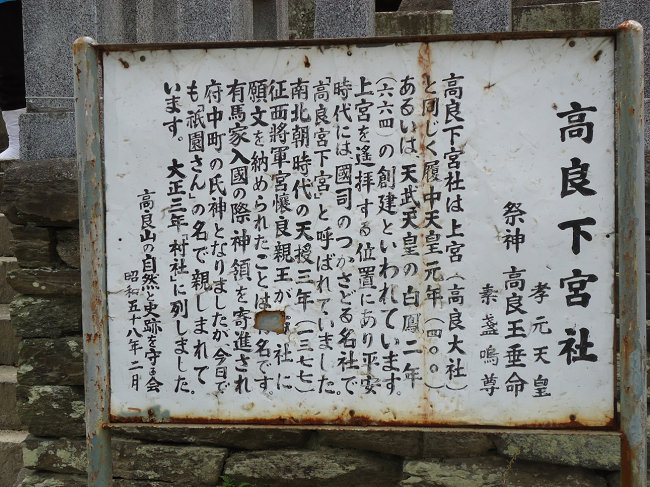 高良下宮社
孝元天皇
祭神 高良玉垂命
素盞嗚尊
高良下宮社は上宮(高良大社)
と同じく履中天皇元年(四〇〇)
あるいは、天武天皇の白鳳二年
(六六四)の創建といわれています。
上宮を遙拝する位置にあり平安
時代には國司のつかさどる名社で
「高良宮下宮」と呼ばれていました。
南北朝時代の天授三年(三七七)
征西將軍宮懐良親王が 社に
願文を納められたことは 名です。
有馬家入國の際神領を寄進され
府中町の氏神となりましたが、今日で
も「祇園さん」の名で親しまれて
います。大正三年村社に列しました。
高良山の自然と史跡を守る会
昭和五十八年二月